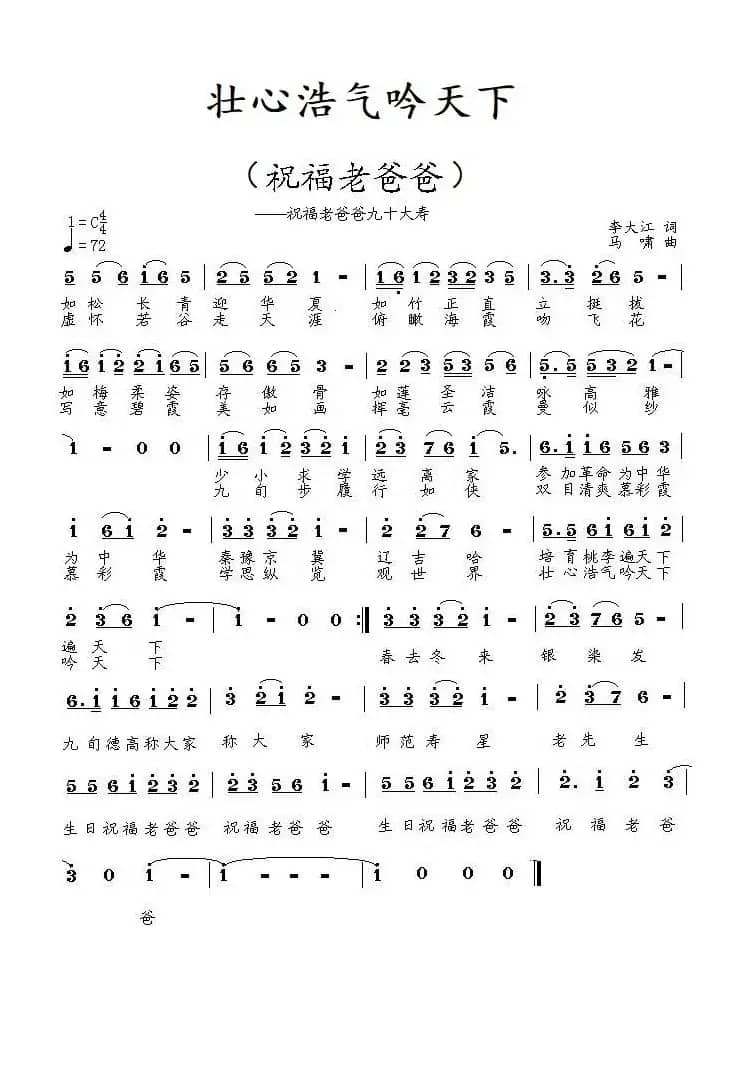 壮心浩气吟天下
（祝福老爸爸）
——祝福老爸爸九十大寿
1=C4/4
♩=72
李大江 词
马啸 曲
5 5 6 1 6 5 | 2 5 5 2 - | 1 6 1 2 3 2 3 5 | 3. 3 2 6 5 -
如松长青迎华夏 如竹正直立挺拔
虚怀若谷走天涯 俯瞰海霞吻飞花
1 6 1 2 2 1 6 5 | 5 6 6 5 3 - | 2 2 3 5 2 5 | 5. 5 5 3 2 1 -
如梅柔姿存傲骨 如莲圣洁咏高雅
写意碧霞美如画 挥毫云霞曼似纱
1 - 0 0 | 1 6 1 2 3 2 1 | 2 3 7 6 1 5. | 6. 1 1 6 5 6 3
少小求学远离家 参加革命为中华
九旬步履行如侠 双目清爽慕彩霞
1 6 1 2 - | 3 3 3 2 1 - | 2 2 7 6 - | 5. 5 6 1 6 1 2
为中华 秦豫京冀 辽吉哈 培育桃李遍天下
慕彩霞 学思纵览 观世界 壮心浩气吟天下
2 3 6 1 - | 1 - 0 0 :| 3 3 3 2 1 - | 2 3 7 6 5 -
遍天下 春去冬来 银染发
吟天下
6. 1 1 6 1 2 2 | 3 2 1 2 - | 3. 3 2 1 2 - | 2 3 7 6 -
九旬德高称大家 称大家 师范寿星 老先生
5 5 6 1 2 3 2 | 2 5 5 3 2 - | 5 5 6 1 2 3 2 | 2. 1 2 3
生日祝福老爸爸 祝福老爸爸 生日祝福老爸爸 祝福老爸
3 0 1 - | 1 - - - | 1 0 0 0 ‖
爸